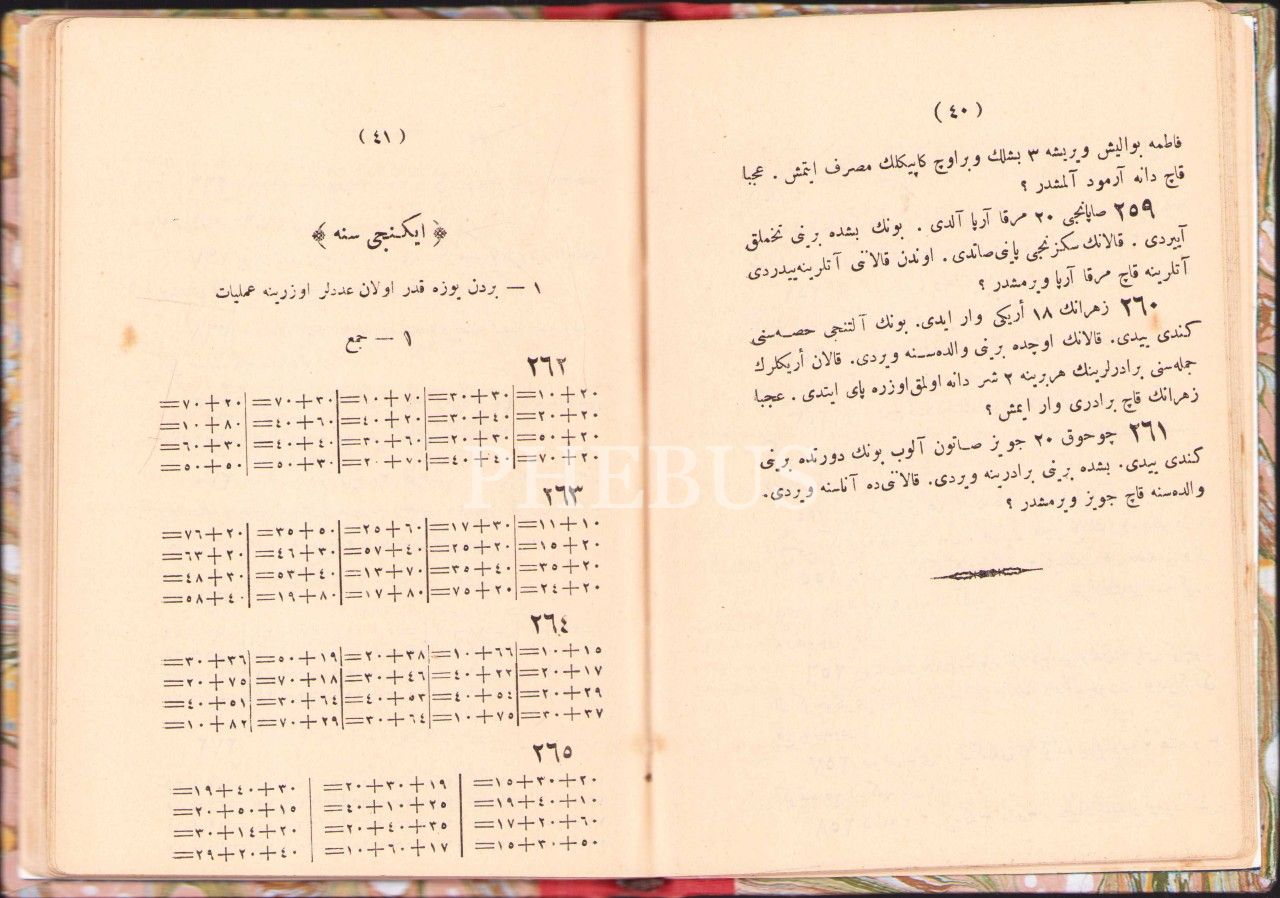 ( ٤٠ )
فاطمه بو الیش ویریشه ٣ بشلك و بر اوچ کاپیکلك مصرف ایتمش . عجبا
قاچ دانه آرمود آلمشدر ؟
٢٥٩ صاپانجی ٢٠ مرقا آرپا آلدی . بونك بشده برینی تخملق
آییردی . قالانك سکزنجی پاینی صاتدی . اوندن قالاننی آتلرینه ییدردی
آتلرینه قاچ مرقا آرپا ویرمشدر ؟
٢٦٠ زهرانك ١٨ أریکی وار ایدی. بونك آلتنجی حصه‌سنی
کندی ییدی. قالانك اوچده برینی والده‌سنه ویردی. قالان أریکلرك
جمله‌سنی برادرلرینك هربرینه ٢ شر دانه اولمق اوزره پای ایتدی . عجبا
زهرانك قاچ برادری وار ایمش ؟
٢٦١ چوحوق ٢٠ جویز صاتون آلوب بونك دورتده برینی
کندی ییدی. بشده برینی برادرینه ویردی. قالاننی‌ده آناسنه ویردی.
والده‌سنه قاچ جویز ویرمشدر ؟
( ٤١ )
﴿ ایکنجی سنه ﴾
١ — بردن یوزه قدر اولان عددلر اوزرینه عملیات
١ — جمع
٢٦٢
٢٠+١٠= ٣٠+٣٠= ٧٠+١٠= ٣٠+٧٠= ٢٠+٧٠=
٢٠+٢٠= ٤٠+٣٠= ٢٠+٤٠= ٦٠+٤٠= ٨٠+١٠=
٢٠+٥٠= ٣٠+٢٠= ٦٠+٣٠= ٤٠+٤٠= ٣٠+٦٠=
٢٠+٧٠= ٤٠+٤٠= ٧٠+٢٠= ٣٠+٥٠= ٥٠+٥٠=
٢٦٣
١٠+١١= ٣٠+١٧= ٦٠+٢٥= ٥٠+٣٥= ٢٠+٧٦=
٢٠+١٥= ٢٠+٢٥= ٤٠+٥٧= ٣٠+٤٦= ٢٠+٦٣=
٢٠+٣٥= ٤٠+٣٥= ٧٠+١٣= ٤٠+٥٣= ٣٠+٤٨=
٢٠+٢٤= ٢٠+٧٥= ٨٠+١٧= ٨٠+١٩= ٤٠+٥٨=
٢٦٤
١٥+١٠= ٦٦+١٠= ٣٨+٢٠= ١٩+٥٠= ٣٦+٣٠=
١٧+٢٠= ٢٢+٤٠= ٤٦+٣٠= ١٨+٧٠= ٧٥+٢٠=
٢٩+٢٠= ٥٤+٤٠= ٥٣+٤٠= ٦٤+٣٠= ٥١+٤٠=
٣٧+٣٠= ٧٥+١٠= ٦٤+٣٠= ٢٩+٧٠= ٨٢+١٠=
٢٦٥
٢٠+٣٠+١٥= ١٩+٣٠+٢٠= ٣٠+٤٠+١٩=
١٠+٤٠+١٩= ٢٥+١٠+٤٠= ١٥+٥٠+٢٠=
٦٠+٢٠+١٧= ٣٥+٤٠+٢٠= ٢٠+١٤+٣٠=
٥٠+٣٠+١٥= ١٧+٦٠+١٠= ٤٠+٢٠+٢٩=
PHEBUS